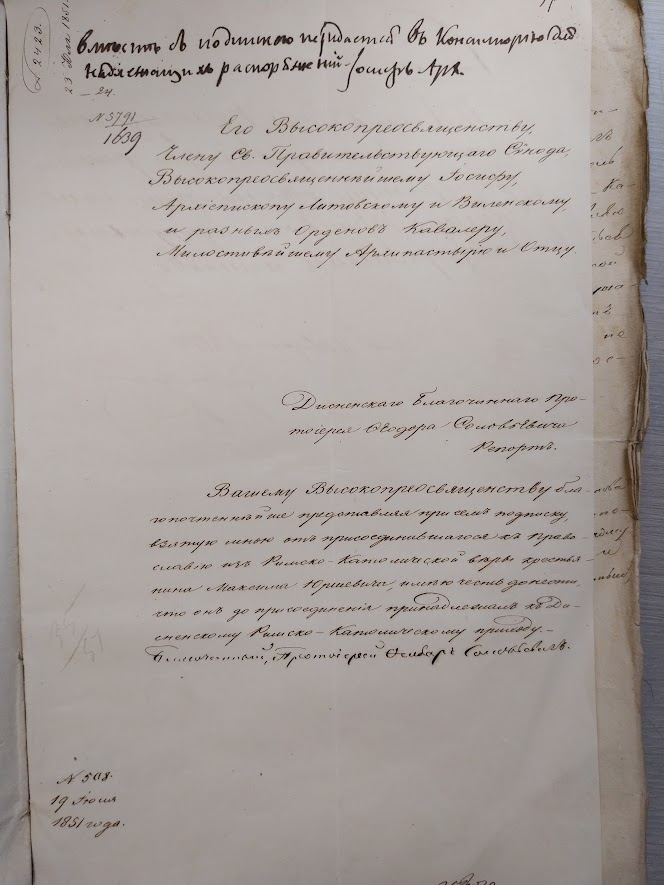 № 2423.
23 Июля 1851.
24.
Вмѣстѣ съ подпискою передается въ Консисторію для
надлежащихъ распоряженій. Іосифъ Арх.
№ 5791
1639
Его Высокопреосвященству,
Члену Св. Правительствующаго Сѵнода,
Высокопреосвященнѣйшему Іосифу,
Архіепископу Литовскому и Виленскому,
и разныхъ Орденовъ Кавалеру,
Милостивѣйшему Архипастырю и Отцу.
Дисненскаго Благочиннаго Про-
тоіерея Ѳеодора Соловьевича
Репортъ.
Вашему Высокопреосвященству бла-
гопочтеннѣйше представляя при семъ подписку,
взятую мною отъ присоединившагося къ Право-
славію изъ Римско-Католической вѣры крестья-
нина Максима Юршевича, имѣю честь донести,
что онъ до присоединенія принадлежалъ къ Ди-
сненскому Римско-Католическому приходу.
Благочинный, Протоіерей Ѳеодоръ Соловьевичъ.
№ 508.
19 Іюля
1851 года.